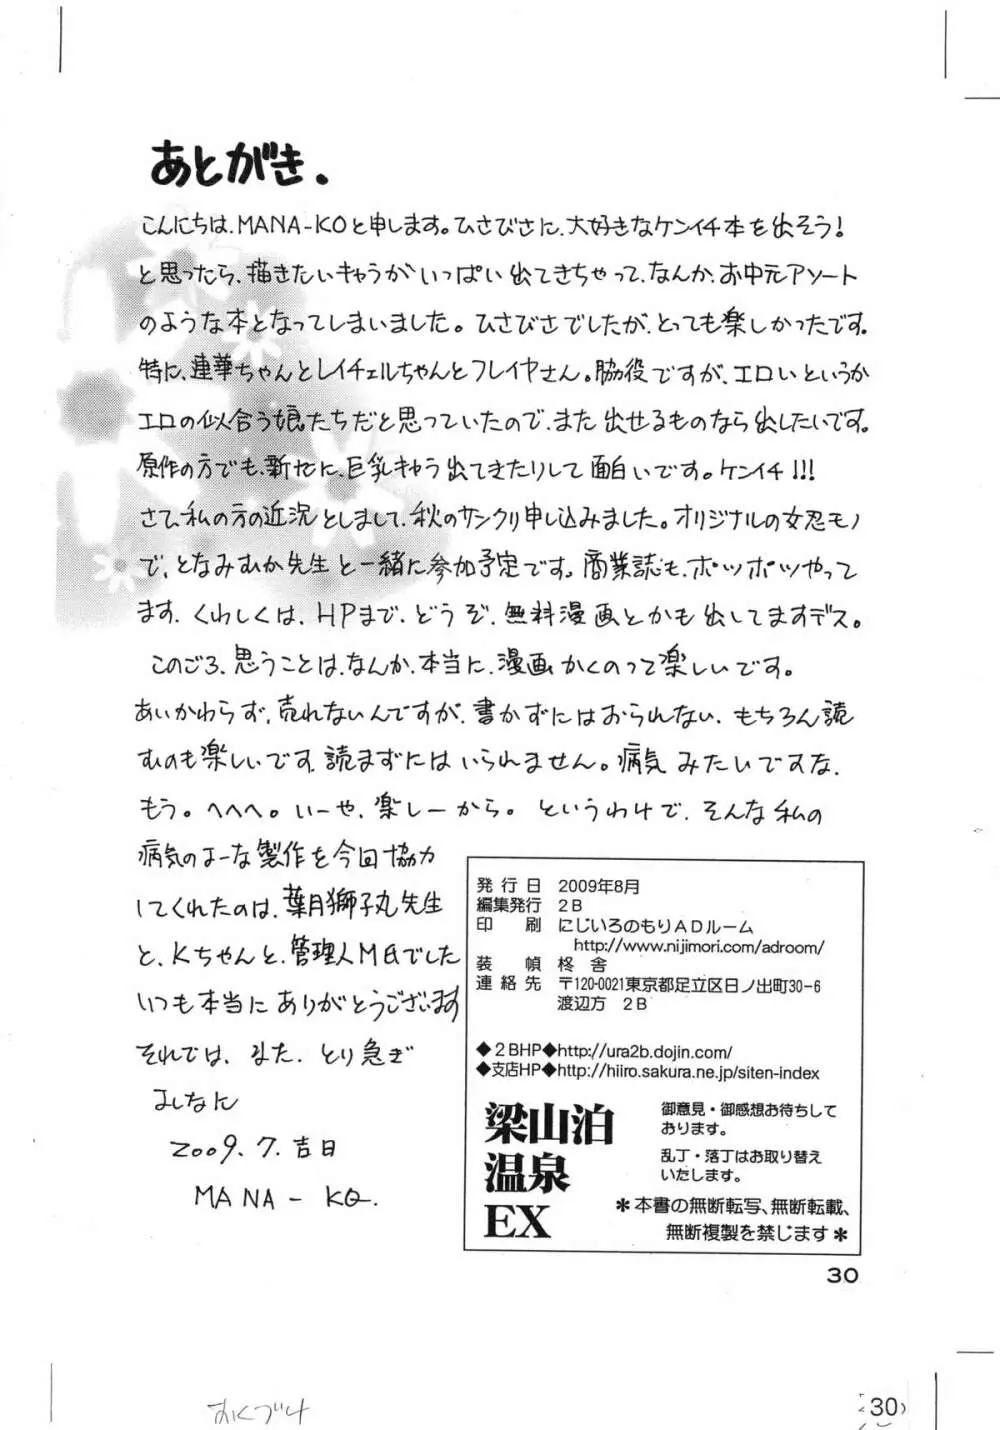 あとがき.
こんにちは、MANA-KOと申します。ひさびさに、大好きなケンイチ本を出そう!
と思ったら、描きたいキャラがいっぱい出てきちゃって、なんか、お中元アソート
のような本となってしまいました。ひさびさでしたが、とっても楽しかったです。
特に、連華ちゃんとレイチェルちゃんとフレイヤさん。脇役ですが、エロいというか
エロの似合う娘たちだと思っていたので、また出せるものなら出したいです。
原作の方でも、新たに、巨乳キャラ出てきたりして面白いです。ケンイチ!!!
さて、私の方の近況としまして、秋のサンクリ申し込みました。オリジナルの女忍モノ
で、となみむか先生と一緒に参加予定です。商業誌も、ポツポツやって
ます、くわしくは、HPまで、どうぞ、無料漫画とかも出してますデス。
このごろ、思うことは、なんか、本当に、漫画かくのって楽しいです。
あいかわらず、売れないんですが、書かずにはおられない、もちろん読
むのも楽しいです、読まずにはいられません。病気みたいですな、
もう。へへへ。いーや、楽しーから。というわけで、そんな私の
病気のよーな製作を今回協力
してくれたのは、葉月獅子丸先生
と、Kちゃんと、管理人MGでした
いつも本当にありがとうございます
それでは、また、とり急ぎ
よしなに
2009.7.吉日
MANA-KO.
発行日 2009年8月
編集発行 2B
印刷 にじいろのもりADルーム
http://www.nijimori.com/adroom/
装幀 柊舎
連絡先 〒120-0021東京都足立区日ノ出町30-6
渡辺方 2B
◆2BHP◆http://ura2b.dojin.com/
◆支店HP◆http://hiiro.sakura.ne.jp/siten-index
梁山泊
温泉
EX
御意見・御感想お待ちして
おります。
乱丁・落丁はお取り替え
いたします。
＊本書の無断転写、無断転載、
無断複製を禁じます＊
30
おくづけ
30